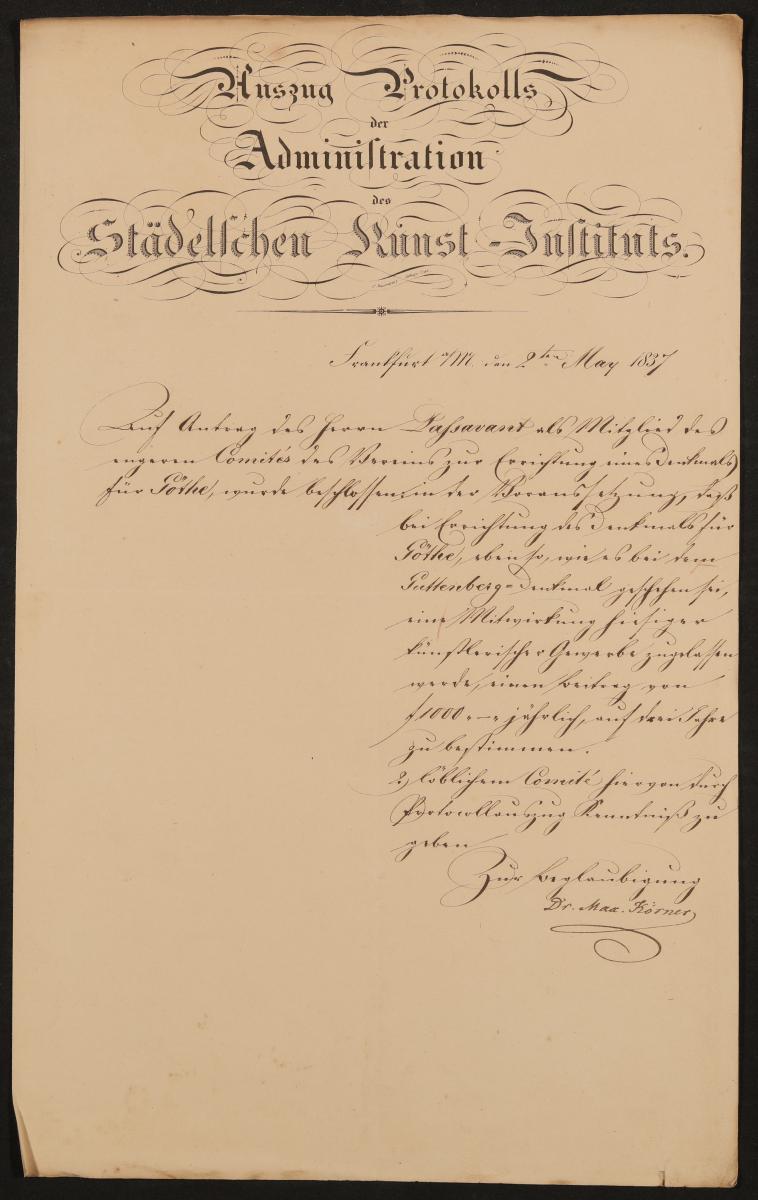 Auszug Protokolls
der
Administration
des
Städelschen Kunst-Instituts.
Frankfurt a/M. den 2ten May 1837
Auf Antrag des Herrn Passavant als Mitglied des
engeren Comités des Vereins zur Errichtung eines Denkmals
für Göthe, wurde beschlossen: in der Voraussetzung, daß
bei Errichtung des Denkmals für
Göthe, ebenso, wie es bei dem
Guttenberg-Denkmal geschehen sei,
eine Mitwirkung hiesiger
künstlerischer Gewerbe zugelassen
werde, einen Beitrag von
f 1000 „—„ jährlich, auf drei Jahre
zu bestimmen.
2) löblichem Comité hiervon durch
Protocollauszug Kenntniß zu
geben
Zur Beglaubigung
Dr. Körner